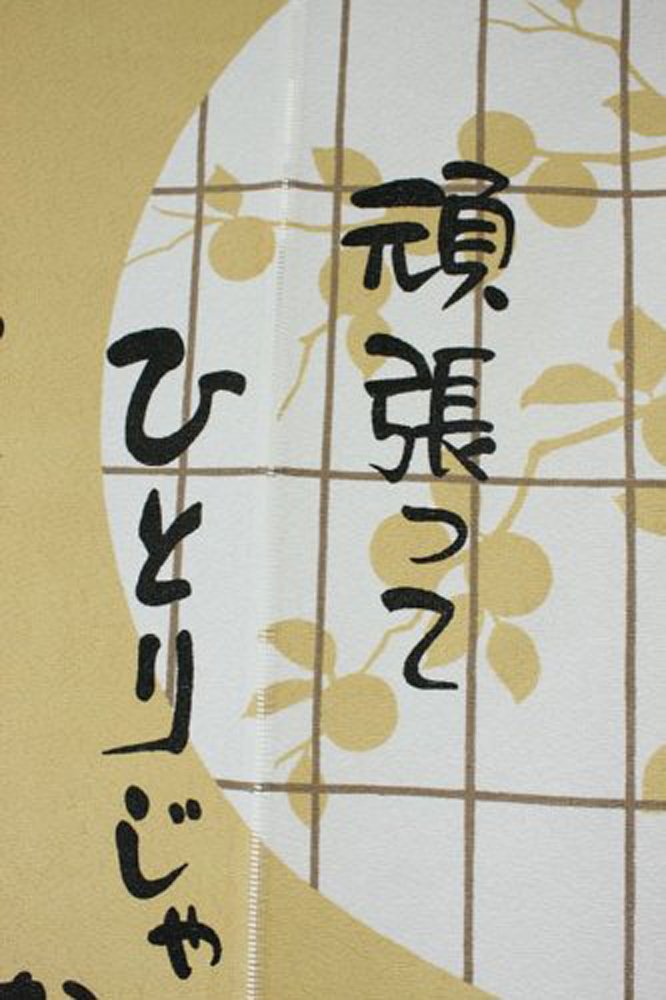 頑張って
ひとりじゃ